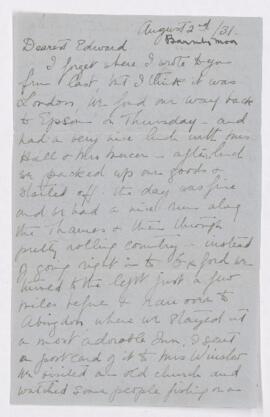 August 2nd /31.
Dearest Edward
I forget where I wrote to you
from last, but I think it was
London. We found our way back
to Epsom on Thursday - and
had a very nice lunch with Mrs
Hall & Mrs Mercer - after lunch
we packed up our goods &
started off. The day was fine
and we had a nice run along
the Thames & then through
pretty rolling country - instead
of going right in to Oxford we
turned to the left just a few
miles before & ran over to
Abingdon where we stayed at
a most adorable Inn. I sent
a postcard of it to Mrs Winslow
We visited an old church and
watched some people fishing on a